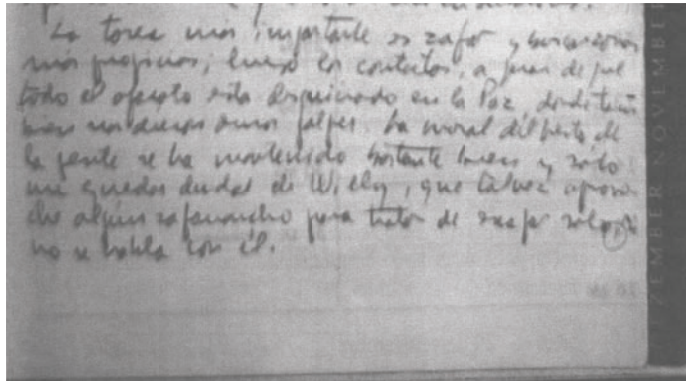 La tarea más importante es zafar y buscar zonas
más propicias; luego los contactos, a pesar de que
todo el aparato está desquiciado en la Paz, donde tam
bién nos dieron duros golpes. La moral del resto de
la gente se ha mantenido bastante bien y sólo
me quedan dudas de Willy, que tal vez aprove
che algún zafarrancho para tratar de escapar solo si
no se habla con él.
NOVEMBER